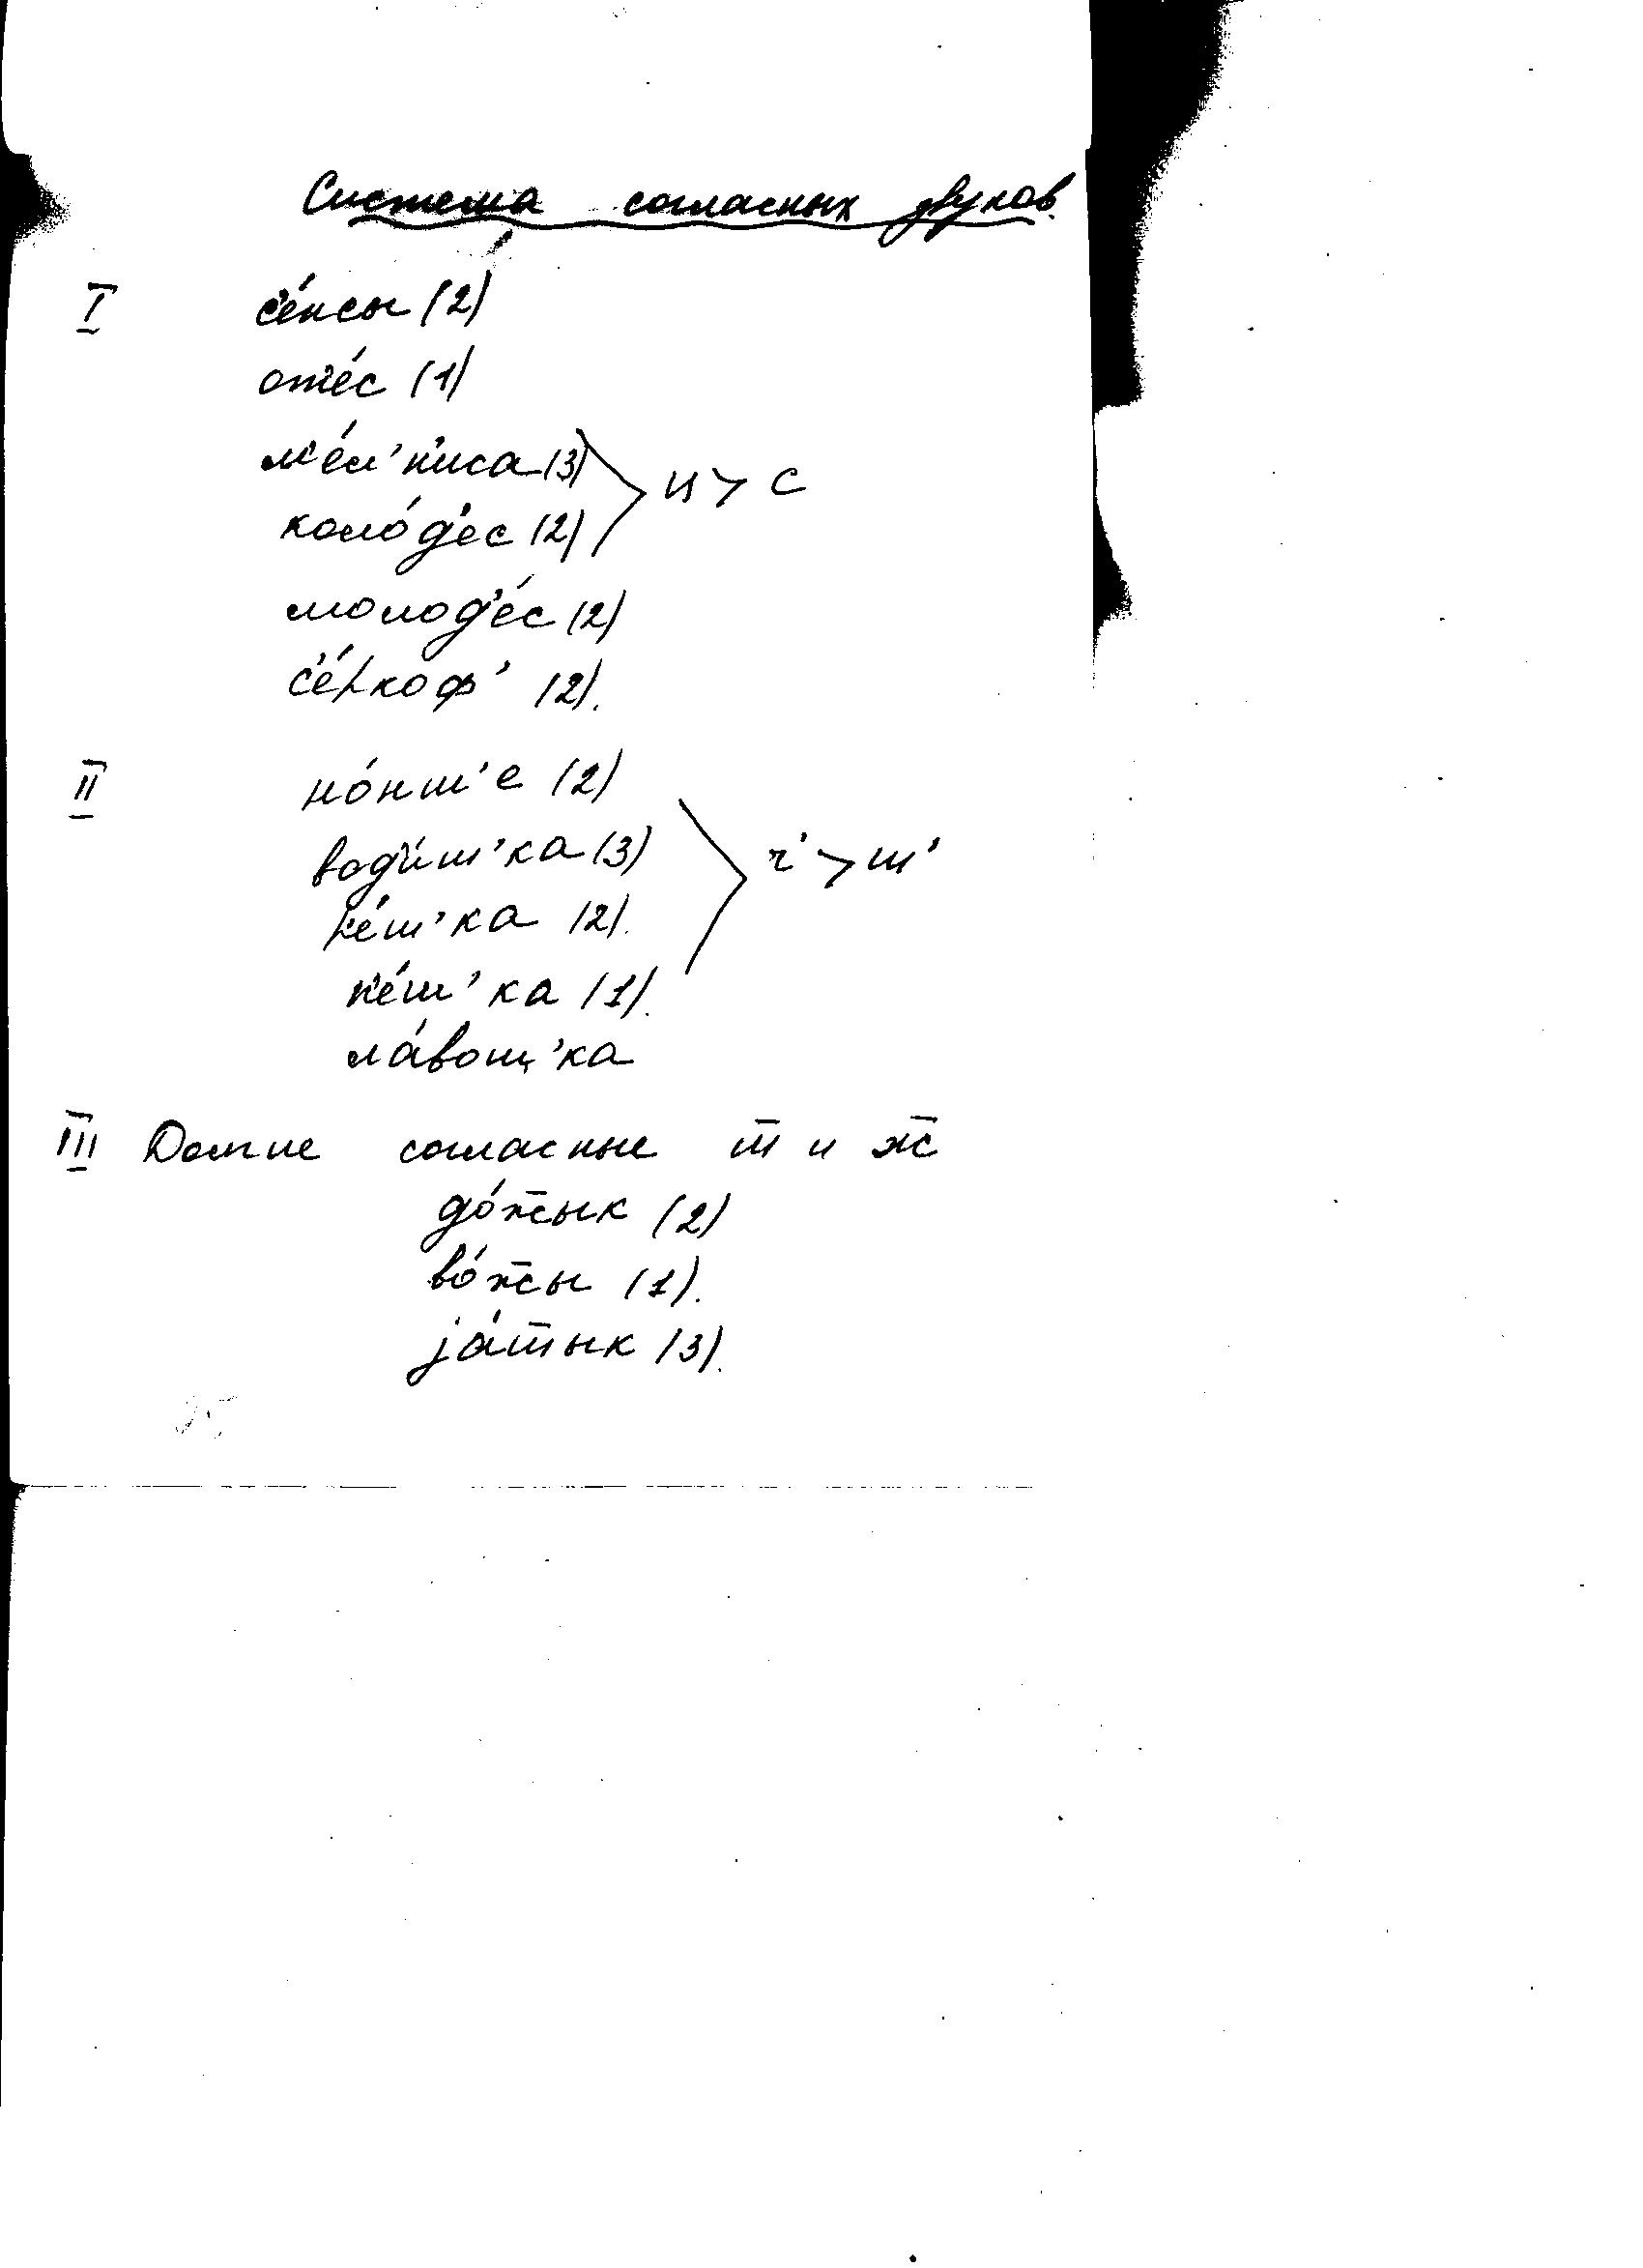 Система согласных звуков.
I с'е́нсы (2)
от'е́с (1)
м'е́л'н'иса (3)
коло́д'ес (2)
ц > с
молод'е́с (2)
с'е́ркоф' (2).
II но́нш'е (2)
вод'и́ш'ка (3)
р'е́ш'ка (2).
п'е́ш'ка (1).
ла́вош'ка
ч' > ш'
III Долгие согласные ш̅ и ж̅
до́ж̅ык (2)
во́ж̅ы (1).
jа́ш̅ык (3).